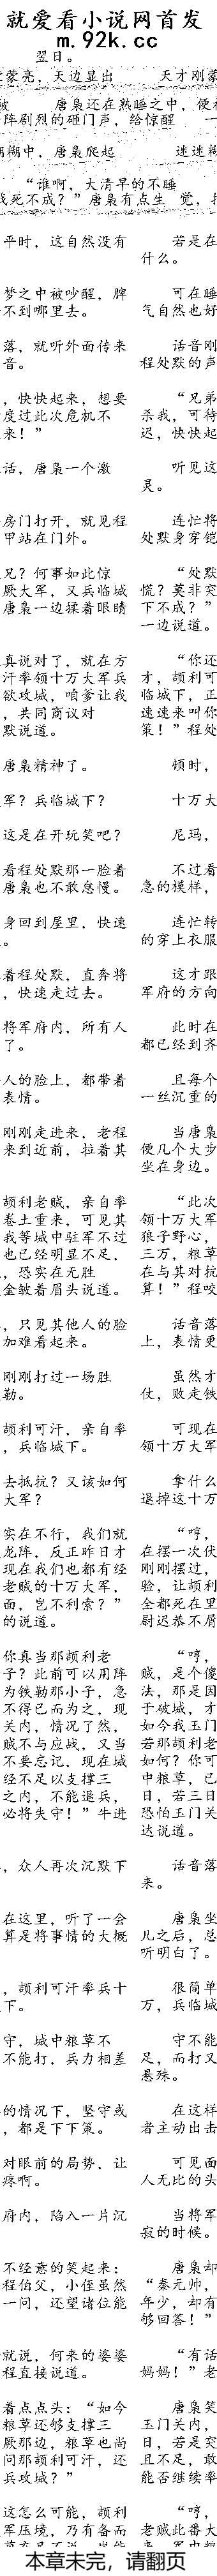 就爱看小说网首发
m.92k.cc
翌日。
蒙亮，天边显出 天才刚蒙
唐枭还在熟睡之中，便
阵剧烈的砸门声，给惊醒
糊中，唐枭爬起 迷迷糊
“谁啊，大清早的不睡
死不成？”唐枭有点生 觉，
平时，这自然没有 若是在
什么。
梦之中被吵醒，脾 可在睡
不到哪里去。 气自然也好
落，就听外面传来 话音刚
音。 程处默的声
，快快起来，想要 “兄弟
度过此次危机不 杀我，可待
来！” 迟，快快起
话，唐枭一个激 听见这
灵。
房门打开，就见程 连忙将
甲站在门外。 处默身穿铠
兄？何事如此惊 “处默
厥大军，又兵临城 慌？莫非突
唐枭一边揉着眼睛 下不成？”
一边说道。
真说对了，就在方 “你还
汗率领十万大军兵 才，颉利可
欲攻城，咱爹让我 临城下，正
，共同商议对 速速来叫你
默说道。 策！”程处
唐枭精神了。 顿时，
军？兵临城下？ 十万大
这是在开玩笑吧？ 尼玛，
看程处默那一脸着 不过看
唐枭也不敢怠慢。 急的模样，
身回到屋里，快速 连忙转
。 的穿上衣服
着程处默，直奔将 这才跟
，快速走过去。 军府的方向
将军府内，所有人 此时在
了。 都已经到齐
人的脸上，都带着 且每个
表情。 一丝沉重的
刚刚走进来，老程 当唐枭
来到近前，拉着其 便几个大步
坐在身边。
颉利老贼，亲自率 “此次
卷土重来，可见其 领十万大军
我等城中驻军不过 狼子野心，
也已经明显不足， 三万，粮草
，恐实在无胜 在与其对抗
金皱着眉头说道。 算！”程咬
，只见其他人的脸 话音落
加难看起来。 上，表情更
刚刚打过一场胜 虽然才
勒。 仗，败走铁
颉利可汗，亲自率 可现在
，兵临城下。 领十万大军
去抵抗？又该如何 拿什么
大军？ 退掉这十万
实在不行，我们就 “哼，
龙阵，反正昨日才 在摆一次伏
现在我们也都有经 刚刚摆过，
老贼的十万大军， 验，让颉利
面，岂不利索？” 全都死在里
的说道。 尉迟恭不屑
你真当那颉利老 “哼，
子？此前可以用阵 贼，是个傻
为铁勒那小子，急 法，那是因
不得已而为之，现 于破城，才
关内，情况了然， 如今我玉门
贼不与应战，又当 若那颉利老
不要忘记，现在城 如何？你可
经不足以支撑三 中粮草，已
之内，不能退兵， 日，若三日
必将失守！”牛进 恐怕玉门关
达说道。
，众人再次沉默下 话音落
来。
在这里，听了一会 唐枭坐
算是将事情的大概 儿之后，总
听明白了。
，颉利可汗率兵十 很简单
下。 万，兵临城
守，城中粮草不 守不能
不能打，兵力相差 足，而打又
悬殊。
的情况下，坚守或 在这样
，都是下下策。 者主动出击
对眼前的局势，让 可见面
疼啊。 人无比的头
府内，陷入一片沉 当将军
寂的时候。
不经意的笑起来： 唐枭却
程伯父，小侄虽然 “秦元帅，
一问，还望诸位能 年少，却有
够回答！”
就说，何来的婆婆 “有话
程直接说道。 妈妈！”老
着点点头：“如今 唐枭笑
粮草还够支撑三 玉门关内，
厥那边，粮草也尚 日，若是突
问那颉利可汗，还 且不足，敢
兵攻城？” 能否继续率
这怎么可能，颉利 “哼，
军压境，乃有备而 老贼此番大
本章未完，请翻页